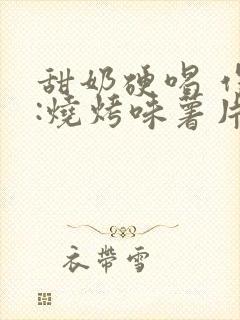 甜奶硬唱
:燒烤味薯片
衣帶雪